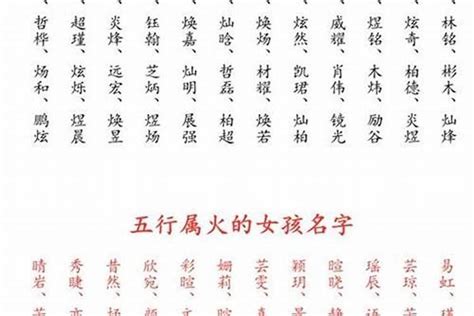 哲桦、超瑾、炎烽、钰翰、焕嘉、灿晗、焕炀、炫然、威耀、煜铭、炫奇、林铭、
炀和、炫烁、远宏、芝炳、灿明、哲磊、材耀、凯珺、肖伟、木炜、柏德、彬木、
鹏炫 煜晨 焕昱 煜炀 展强 柏超 焕若 灿怡 镜光 励谷 炎煜 灿烽
五行属火的女孩名字
晴岩、秀睫、昔然、欣宛、彩暄、姗莉、芸雯、颖玥、暄晓、瑶辰、芸琼、易虹、